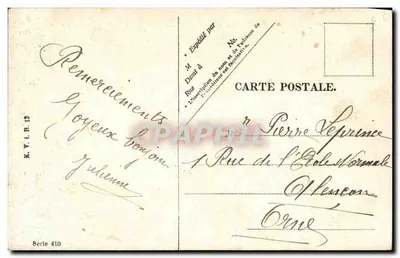 K. V. i. B. 12
Remerciements
Joyeux bonjour
Julienne
Serie 410
Expédié par
M
No.
Demt à
Rue
* L'inscription du nom et de l'adresse de
l'expéditeur est facultative.
CARTE POSTALE.
CPAPHIL
Pierre Leprince
1 Rue de l'Ecole Normale
Alençon
Orne